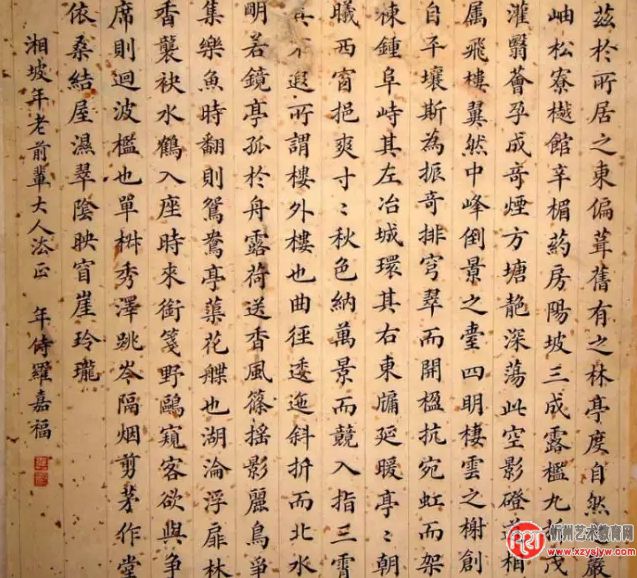 茲於所居之東偏葺舊有之林亭度自然巖
岫松寮樾館辛楣葯房陽坡三成露檻九茂
灌翳薈孕成奇煙方塘靘深蕩此空影磴相
属飛樓翼然中峰倒景之臺四明棲雲之榭創
自平壤斯為振奇排穹翠而開楹抗宛虹而架
棟鍾阜峙其左冶城環其右東牖延暖亭〻朝
曦西窗挹爽寸〻秋色納萬景而競入指三霄
其不遐所謂樓外樓也曲徑逶迤斜折而北水
明若鏡亭孤於舟露荷送香風篠搖影麗鳥爭
集樂魚時翻則鴛鴦亭蕖花艓也湖淪浮扉林
香襲袂水鶴入座時來銜箋野鷗窺客欲與爭
席則迴波檻也單椒秀澤跳岑隔烟剪茅作堂
依桑結屋濕翠陰映窅崖玲瓏
湘坡年老前輩大人法正 年侍羅嘉福
忻州艺术教育网
www.xzysjyw.com